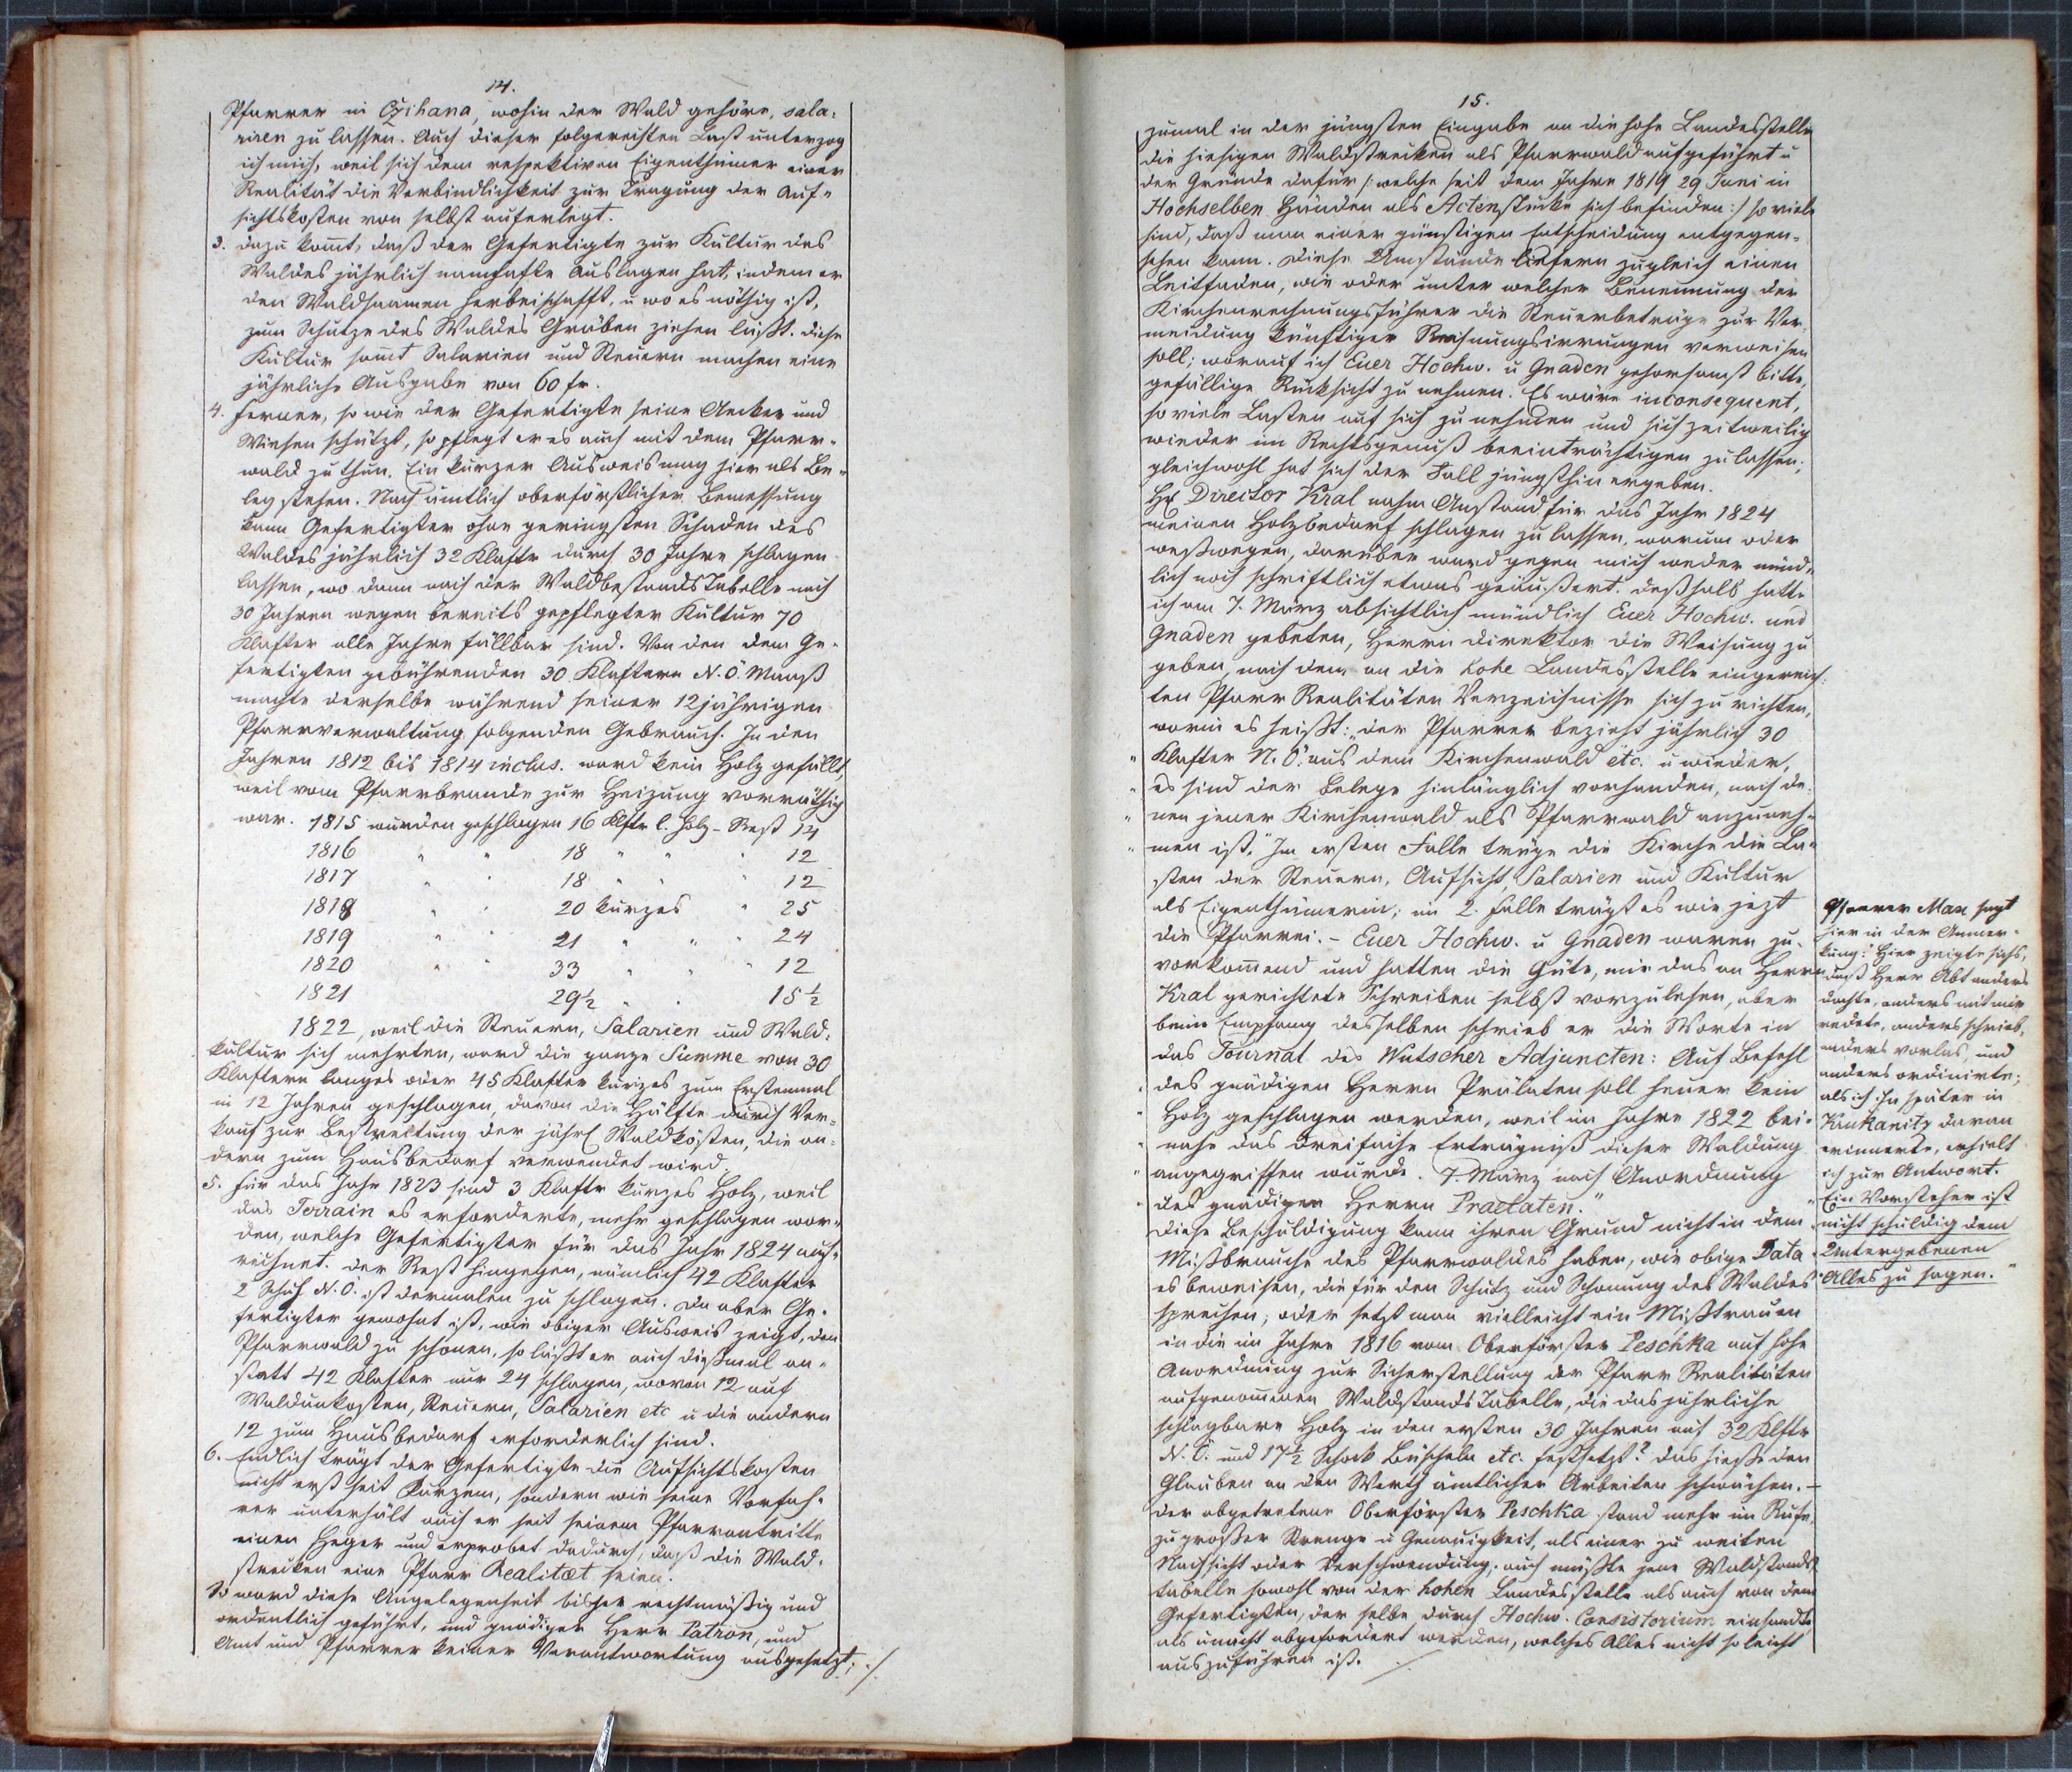 14.
Pfarrer in Czihana, wohin der Wald gehöre, sala-
riren zu lassen. Auch dieser folgerechten Last unterzog
ich mich, weil sich dem respektiven Eigenthümer einer
Realität die Verbindlichkeit zur Tragung der Auf-
sichtskosten von selbst auferlegt.
3. dazu kom̄t, daß der Gefertigte zur Kultur des
Waldes jährlich namhafte Auslagen hat, indem er
den Waldsaamen herbeischafft, u wo es nöthig ist,
zum Schutze des Waldes Gräben ziehen läßt. diese
Kultur sam̄t Salarien und Steuern machen eine
jährliche Ausgabe von 60 fr.
4. ferner, so wie der Gefertigte seine Aecker und
Wiesen schützt, so pflegt er es auch mit dem Pfarr-
wald zu thun. Ein kurzer Ausweis mag hier als Be-
leg stehen. Nach ämtlich oberförstlicher Bemessung
kann Gefertigter ohne geringsten Schaden des
Waldes jährlich 32 Klaftr durch 30 Jahre schlagen
lassen, wo dann nach der Waldbestands Tabelle nach
30 Jahren wegen bereits gepflegter Kultur 70
Klafter alle Jahre fällbar sind. Von den dem Ge-
fertigten gebührenden 30 Klaftern N. Ö. Maaß
machte derselbe während seiner 12 jährigen
Pfarrverwaltung folgenden Gebrauch. In den
Jahren 1812 bis 1814 inclus. ward kein Holz gefällt,
weil vom Pfarrbrande zur Heizung vorräthig
war. 1815 wurden geschlagen 16 Klftr l. Holz - Rest 14
1816 " " 18 " " " 12
1817 " " 18 " " " 12
1818 " " 20 kurzes " 25
1819 " " 21 " " " 24
1820 " " 33 " " " 12
1821 29½ " " 15½
1822, weil die Steuern, Salarien und Wald-
kultur sich mehrten, ward die ganze Summe von 30
Klaftern langes oder 45 Klafter kurzes zum Erstenmal
in 12 Jahren geschlagen, davon die Hälfte durch Ver-
kauf zur Bestreitung der jährl Waldkösten, die an-
dern zum Hausbedarf verwendet wird.
5. für das Jahr 1823 sind 3 Klaftr kurzes Holz, weil
das Terrain es erforderte, mehr geschlagen wor-
den, welche Gefertigter für das Jahr 1824 auf-
rechnet. der Rest hingegen, nämlich 42 Klafter
2 Schuh N. Ö. ist dermalen zu schlagen. Da aber Ge-
fertigter gewohnt ist, wie obiger Ausweis zeigt, den
Pfarrwald zu schonen, so läßt er auch dießmal an-
statt 42 Klafter nur 24 schlagen, wovon 12 auf
Waldunkosten, Steuern, Salarien etc u die andern
12 zum Hausbedarf erforderlich sind.
6. Endlich trägt der Gefertigte die Aufsichtskosten
nicht erst seit Kurzem, sondern wie seine Vorfah-
rer unterhält auch er seit seinem Pfarrantritte
einen Heger und erprobet dadurch, daß die Wald-
strecken eine Pfarr Realitæt seien.
So ward diese Angelegenheit bisher rechtmäßig und
ordentlich geführt, und gnädiger Herr Patron, und
Amt und Pfarrer keiner Verantwortung ausgesetzt; ./.
15.
zumal in der jüngsten Eingabe an die hohe Landesstelle
die hiesigen Waldstrecken als Pfarrwald aufgeführt u
der Gründe dafür /: welche seit dem Jahre 1819 29 Juni in
Hochselben Händen als Actenstücke sich befinden :/ so viele
sind, daß man einer günstigen Entscheidung entgegen-
sehen kann. Diese Umstände liefern zugleich einen
Leitfaden, wie oder unter welcher Benennung der
Kirchenrechnungsführer die Steuerbeträge zur Ver-
meidung künftiger Rechnungsirrungen verweisen
soll; worauf ich Euer Hochw. u Gnaden gehorsamst bitte,
gefällige Rücksicht zu nehmen. Es wäre inconsequent,
so viele Lasten auf sich zu nehmen und sich zeitweilig
wieder im Rechtsgenuß beeinträchtigen zu lassen;
gleichwohl hat sich der Fall jüngsthin ergeben.
Hr Director Kral nahm Anstand für das Jahr 1824
meinen Holzbedarf schlagen zu lassen, warum oder
weßwegen, darüber ward gegen mich weder münd-
lich noch schriftlich etwas geäußert. deßhalb hatte
ich am 7. März absichtlich mündlich Euer Hochw. und
Gnaden gebeten, Herrn Direktor die Weisung zu
geben, nach dem an die hohe Landesstelle eingereich-
ten Pfarr Realitäten Verzeichnisse sich zu richten,
worin es heißt: „der Pfarrer bezieht jährlich 30
" Klafter N. Ö. aus dem Kirchenwald etc. u wieder,
" es sind der Belege hinlänglich vorhanden, nach de-
" nen jener Kirchenwald als Pfarrwald anzuneh-
" men ist." Im ersten Falle trüge die Kirche die La-
sten der Steuern, Aufsicht, Salarien und Kultur
als Eigenthümerin; im 2. Falle trägt es wie jezt
die Pfarrei. - Euer Hochw. u Gnaden waren zu-
vorkom̄end und hatten die Güte, mir das an Herrn
Kral gerichtete Schreiben selbst vorzulesen, aber
beim Empfang desselben schrieb er die Worte in
das Journal des Wutscher Adjuncten: Auf Befehl
" des gnädigen Herrn Prälaten soll heuer kein
" Holz geschlagen werden, weil im Jahre 1822 bei-
" nahe das dreifache Erträgniß dieser Waldung
" angegriffen wurde. 7. März nach Anordnung
" des gnädigen Herrn Praelaten."
Diese Beschuldigung kann ihren Grund nicht in dem
Mißbrauche des Pfarrwaldes haben, wie obige Data
es beweisen, die für den Schutz und Schonung des Waldes
sprechen; oder setzt man vielleicht ein Mißtrauen
in die im Jahre 1816 vom Oberförster Peschka auf hohe
Anordnung zur Sicherstellung der Pfarr Realitäten
aufgenom̄enen Waldstands Tabelle, die das jährliche
schlagbare Holz in den ersten 30 Jahren auf 32 Klftr
N. Ö. und 17½ Schock Büscheln etc. festsetzt? das hieße den
Glauben an den Werth ämtlicher Arbeiten schwächen. -
der abgetretene Oberförster Peschka stand mehr im Rufe,
zu großer Strenge u Genauigkeit, als einer zu weiten
Nachsicht oder Verschwendung; auch müßte jene Waldstands
tabelle sowohl von der hohen Landesstelle als auch von dem
Gefertigten, der selbe durch Hochw. Consistorium einsandte
als unächt abgefordert werden, welches Alles nicht so leicht
auszuführen ist.
Pfarrer Max sagt
hier in der Anmer-
kung: Hier zeigte sichs,
daß Herr Abt anders
dachte, anders mit mir
redete, anders schrieb,
anders vorlas, und
anders ordinirte;
als ich ihn später in
Kankanitz daran
erinnerte, erhielt
ich zur Antwort.
"Ein Vorsteher ist
"nicht schuldig dem
"Untergebenen
"Alles zu sagen."